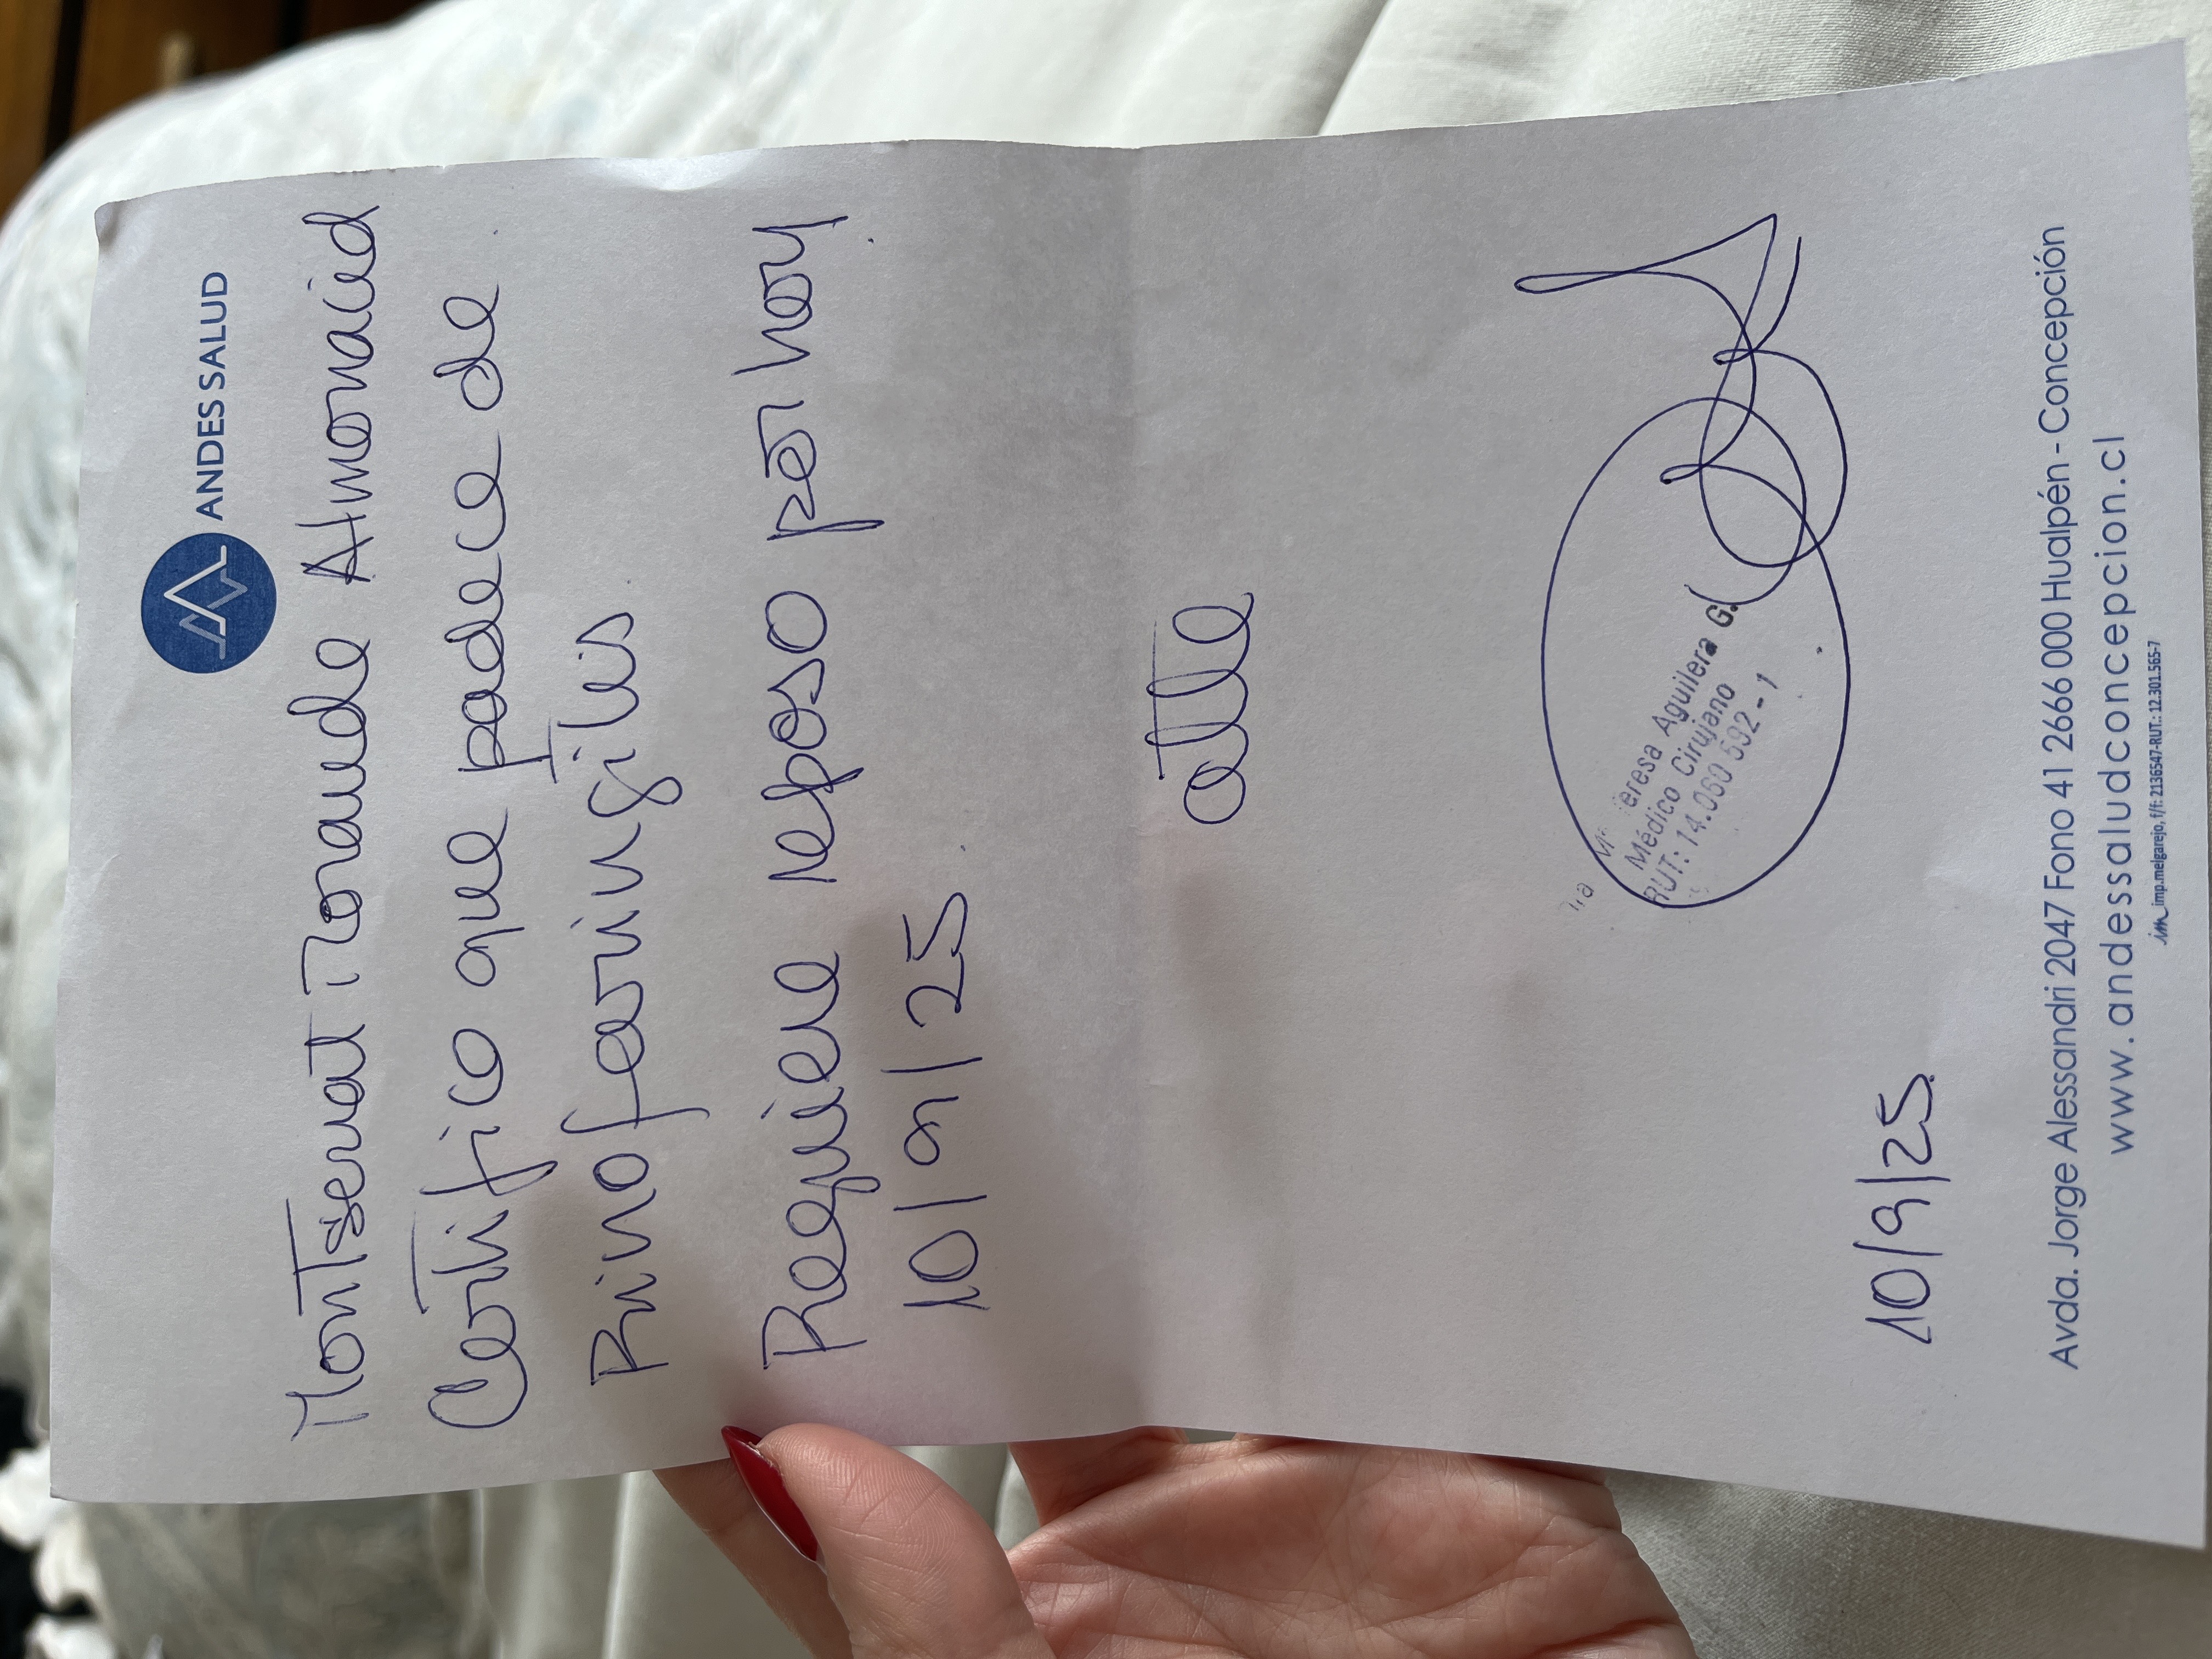 ANDES SALUD
Montserrat Morande Almonacid
Certifico que padece de
Rinofaringitis
Requiere reposo por hoy
10/9/25.
atte
Teresa Aguilera G.
Médico Cirujano
RUT: 14.060 592-1
10/9/25.
Avda. Jorge Alessandri 2047 Fono 41 2666 000 Hualpén - Concepción
www.andessaludconcepcion.cl
imp.melgarejo, f/f: 2136547-RUT.: 12.301.565-7